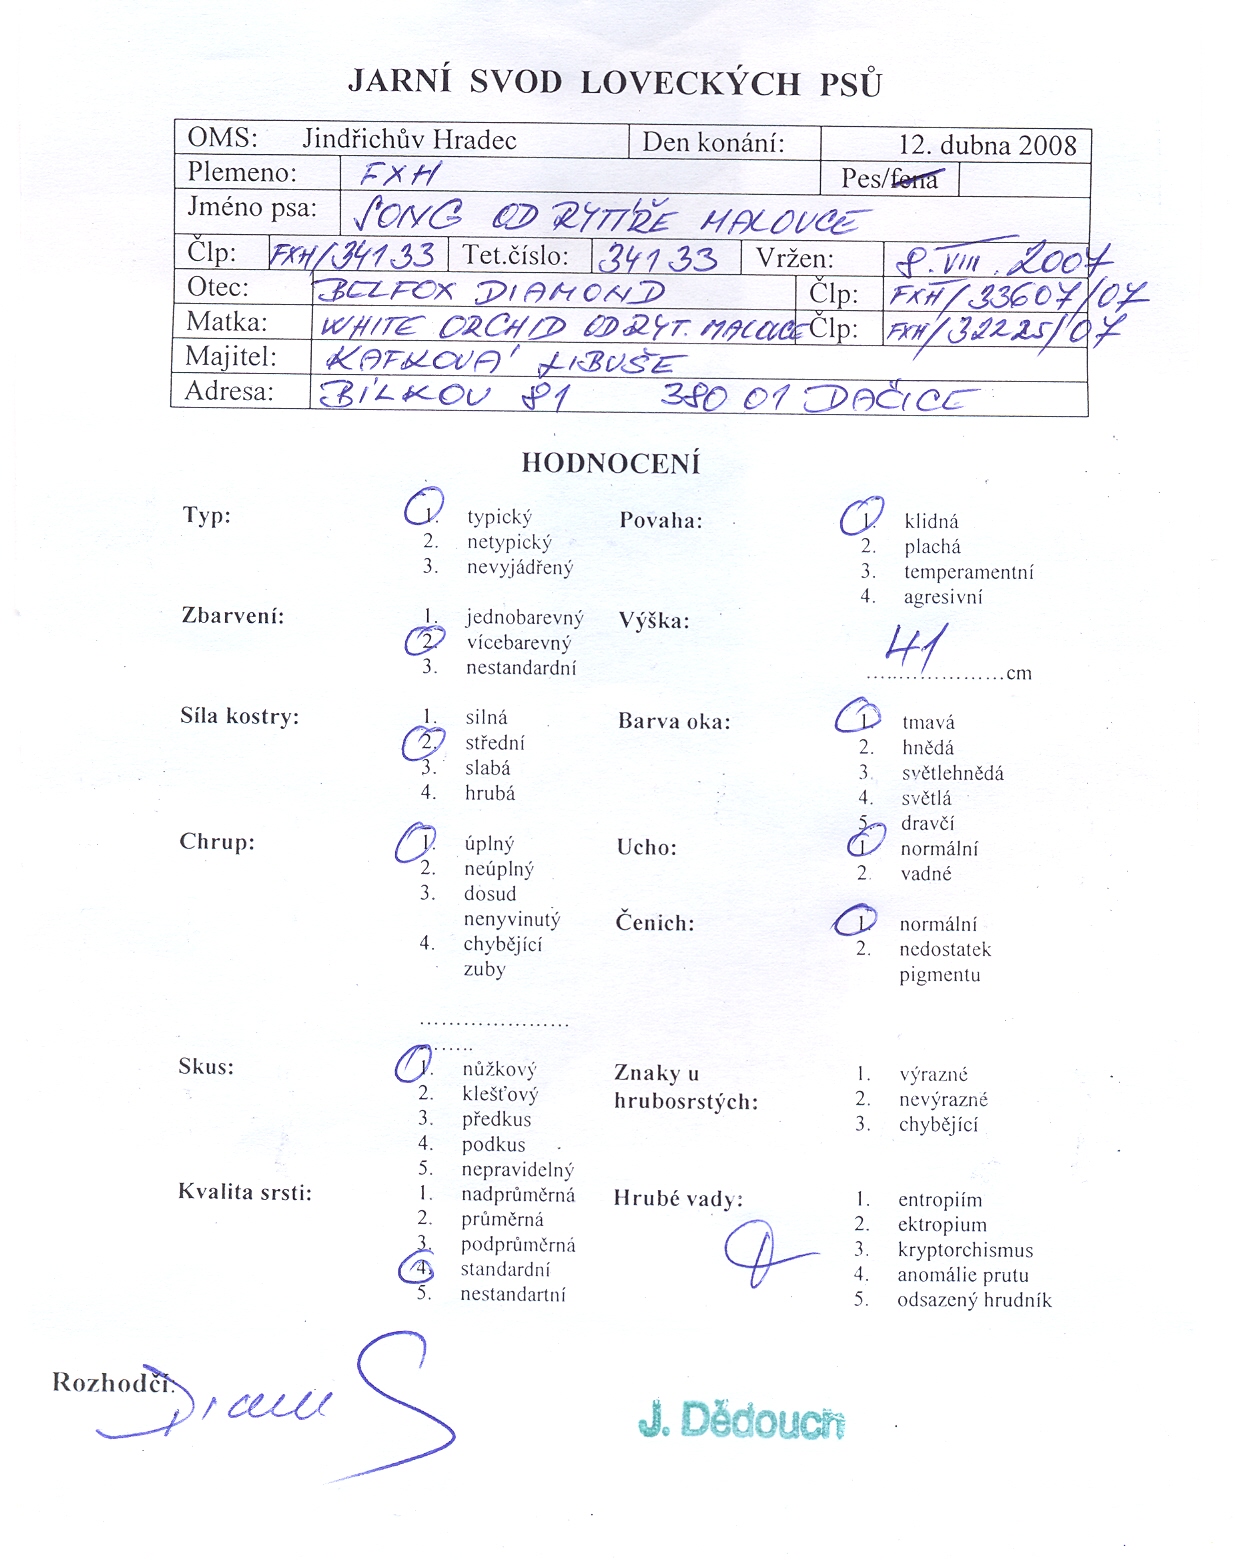 JARNÍ SVOD LOVECKÝCH PSŮ
OMS: Jindřichův Hradec Den konání: 12. dubna 2008
Plemeno: FXH Pes/fena
Jméno psa: SONG OD RYTÍŘE MALOVCE
Člp: FXH/34133 Tet.číslo: 34133 Vržen: 8. VIII. 2007
Otec: BELFOX DIAMOND Člp: FXH/33607/07
Matka: WHITE ORCHID OD RYT. MALOVCE Člp: FXH/32225/07
Majitel: KAFKOVÁ LIBUŠE
Adresa: BÍLKOV 81 380 01 DAČICE
HODNOCENÍ
Typ: 1. typický Povaha: 1. klidná
2. netypický 2. plachá
3. nevyjádřený 3. temperamentní
4. agresivní
Zbarvení: 1. jednobarevný Výška:
2. vícebarevný 41
3. nestandardní ...................cm
Síla kostry: 1. silná Barva oka: 1. tmavá
2. střední 2. hnědá
3. slabá 3. světlehnědá
4. hrubá 4. světlá
5. dravčí
Chrup: 1. úplný Ucho: 1. normální
2. neúplný 2. vadné
3. dosud
nenyvinutý Čenich: 1. normální
4. chybějící 2. nedostatek
zuby pigmentu
.....................
.......
Skus: 1. nůžkový Znaky u 1. výrazné
2. klešťový hrubosrstých: 2. nevýrazné
3. předkus 3. chybějící
4. podkus
5. nepravidelný
Kvalita srsti: 1. nadprůměrná Hrubé vady: 1. entropiím
2. průměrná 2. ektropium
3. podprůměrná 3. kryptorchismus
4. standardní 4. anomálie prutu
5. nestandartní 5. odsazený hrudník
Rozhodčí:
J. Dědouch